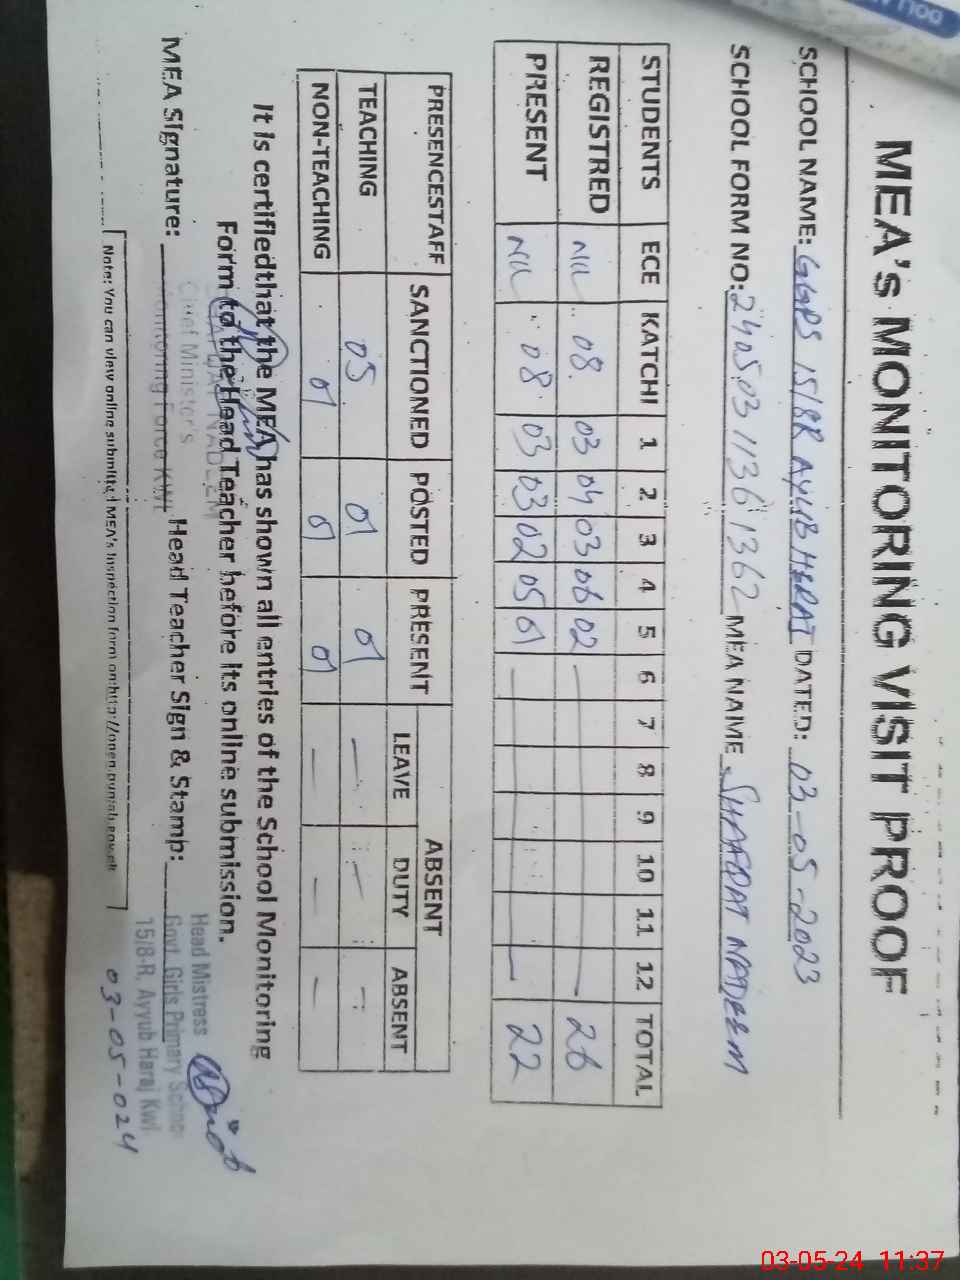 MEA's MONITORING VISIT PROOF
SCHOOL NAME: GGPS 15/8R AYUB HERAT DATED: 03-05-2023
SCHOOL FORM NO: 2405031136 1362 MEA NAME SHAFQAT NADEEM
STUDENTS ECE KATCHI 1 2 3 4 5 6 7 8 9 10 11 12 TOTAL
REGISTRED NIL 08 03 04 03 06 02 — 26
PRESENT NIL 08 03 03 02 05 01 — 22
PRESENCESTAFF SANCTIONED POSTED PRESENT ABSENT
LEAVE DUTY ABSENT
TEACHING 05 01 01 — — —
NON-TEACHING 01 01 01 — — —
It is certifiedthat the MEA has shown all entries of the School Monitoring
Form to the Head Teacher before its online submission.
SHAFQAT NADEEM
Chief Minister's
Monitoring Force KWL
MEA Signature: Head Teacher Sign & Stamp:
Head Mistress
Govt. Girls Primary School
15/8-R, Ayyub Haraj Kwl
03-05-024
Note: You can view online submitted MEA's Inspection form on:http://open.punjab.gov.pk
03-05-24 11:37